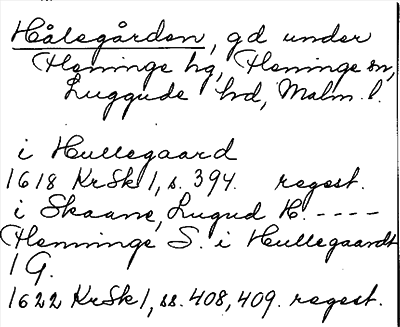 Hålsgården, gd under
Fleninge hg, Fleninge sn,
Luggude hd, Malm. l.
i Hullegaard
1618 KrSk 1, s. 394. regest.
i Skaane, Lugud H. - - - -
Flenninge S. i Hullegaardt
1 G.
1622 KrSk 1, ss. 408, 409. regest.